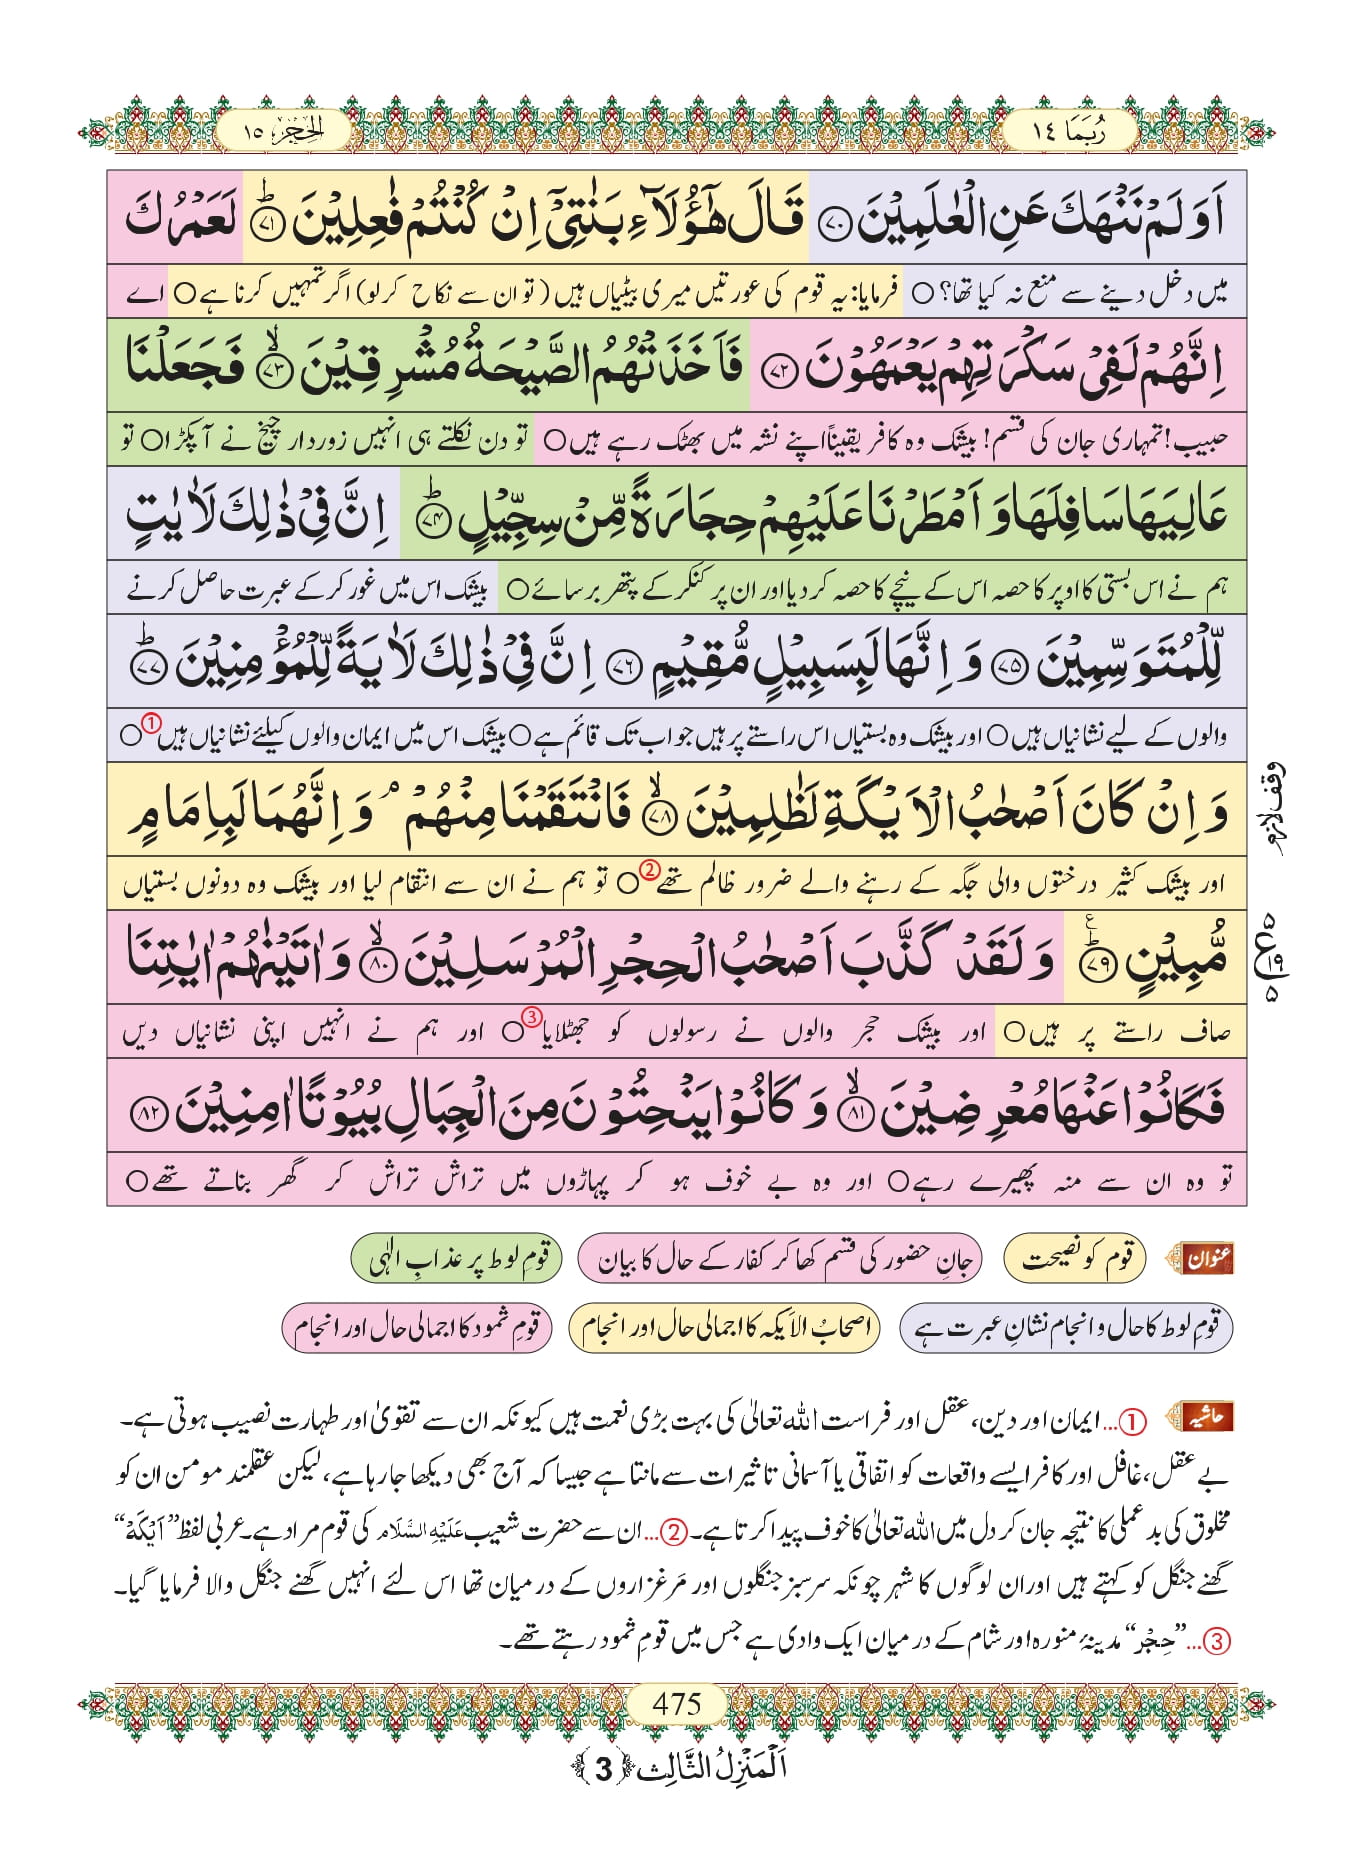 رُبَمَا ١٤
الحِجر ١٥
اَوَلَمْ نَنْهَكَ عَنِ الْعٰلَمِیْنَ ﴿۷۰﴾ قَالَ هٰۤؤُلَآءِ بَنٰتِیْۤ اِنْ كُنْتُمْ فٰعِلِیْنَ ﴿ؕ۷۱﴾ لَعَمْرُكَ
میں دخل دینے سے منع نہ کیا تھا؟○ فرمایا: یہ قوم کی عورتیں میری بیٹیاں ہیں (تو ان سے نکاح کرلو) اگر تمہیں کرنا ہے○ اے
اِنَّهُمْ لَفِیْ سَكْرَتِهِمْ یَعْمَهُوْنَ ﴿۷۲﴾ فَاَخَذَتْهُمُ الصَّیْحَةُ مُشْرِقِیْنَ ﴿ۙ۷۳﴾ فَجَعَلْنَا
حبیب! تمہاری جان کی قسم! بیشک وہ کافر یقیناً اپنے نشہ میں بھٹک رہے ہیں○ تو دن نکلتے ہی انہیں زوردار چیخ نے آپکڑا○ تو
عَالِیَهَا سَافِلَهَا وَ اَمْطَرْنَا عَلَیْهِمْ حِجَارَةً مِّنْ سِجِّیْلٍ ﴿ؕ۷۴﴾ اِنَّ فِیْ ذٰلِكَ لَاٰیٰتٍ
ہم نے اس بستی کا اوپر کا حصہ اس کے نیچے کا حصہ کردیا اور ان پر کنکر کے پتھر برسائے○ بیشک اس میں غور کرکے عبرت حاصل کرنے
لِّلْمُتَوَسِّمِیْنَ ﴿۷۵﴾ وَ اِنَّهَا لَبِسَبِیْلٍ مُّقِیْمٍ ﴿۷۶﴾ اِنَّ فِیْ ذٰلِكَ لَاٰیَةً لِّلْمُؤْمِنِیْنَ ﴿ؕ۷۷﴾
والوں کے لیے نشانیاں ہیں○ اور بیشک وہ بستیاں اس راستے پر ہیں جو اب تک قائم ہے○ بیشک اس میں ایمان والوں کیلئے نشانیاں ہیں①○
وَ اِنْ كَانَ اَصْحٰبُ الْاَیْكَةِ لَظٰلِمِیْنَ ﴿ۙ۷۸﴾ فَانْتَقَمْنَا مِنْهُمْ ۘ وَ اِنَّهُمَا لَبِاِمَامٍ
وقف لازم
اور بیشک کثیر درختوں والی جگہ کے رہنے والے ضرور ظالم تھے②○ تو ہم نے ان سے انتقام لیا اور بیشک وہ دونوں بستیاں
مُّبِیْنٍ ﴿ؕ۷۹﴾ وَ لَقَدْ كَذَّبَ اَصْحٰبُ الْحِجْرِ الْمُرْسَلِیْنَ ﴿ۙ۸۰﴾ وَ اٰتَیْنٰهُمْ اٰیٰتِنَا
صاف راستے پر ہیں○ اور بیشک حجر والوں نے رسولوں کو جھٹلایا③○ اور ہم نے انہیں اپنی نشانیاں دیں
فَكَانُوْا عَنْهَا مُعْرِضِیْنَ ﴿ۙ۸۱﴾ وَ كَانُوْا یَنْحِتُوْنَ مِنَ الْجِبَالِ بُیُوْتًا اٰمِنِیْنَ ﴿۸۲﴾
تو وہ ان سے منہ پھیرے رہے○ اور وہ بے خوف ہو کر پہاڑوں میں تراش تراش کر گھر بناتے تھے○
عنوان قوم کو نصیحت جانِ حضور کی قسم کھا کر کفار کے حال کا بیان قومِ لوط پر عذابِ الٰہی
قومِ لوط کا حال و انجام نشانِ عبرت ہے اصحابُ الاَیکہ کا اجمالی حال اور انجام قومِ ثمود کا اجمالی حال اور انجام
حاشیہ ①...ایمان اور دین، عقل اور فراست اللہ تعالیٰ کی بہت بڑی نعمت ہیں کیونکہ ان سے تقویٰ اور طہارت نصیب ہوتی ہے۔
بے عقل، غافل اور کافر ایسے واقعات کو اتفاقی یا آسمانی تاثیرات سے مانتا ہے جیسا کہ آج بھی دیکھا جارہا ہے، لیکن عقلمند مومن ان کو
مخلوق کی بدعملی کا نتیجہ جان کر دل میں اللہ تعالیٰ کا خوف پیدا کرتا ہے۔ ②...ان سے حضرت شعیب عَلَیْهِ السَّلَام کی قوم مراد ہے۔ عربی لفظ ”اَیْكَهْ“
گھنے جنگل کو کہتے ہیں اور ان لوگوں کا شہر چونکہ سرسبز جنگلوں اور مَرغزاروں کے درمیان تھا اس لئے انہیں گھنے جنگل والا فرمایا گیا۔
③...”حِجْر“ مدینۂ منورہ اور شام کے درمیان ایک وادی ہے جس میں قومِ ثمود رہتے تھے۔
475
اَلْمَنْزِلُ الثَّالِث ﴿3﴾